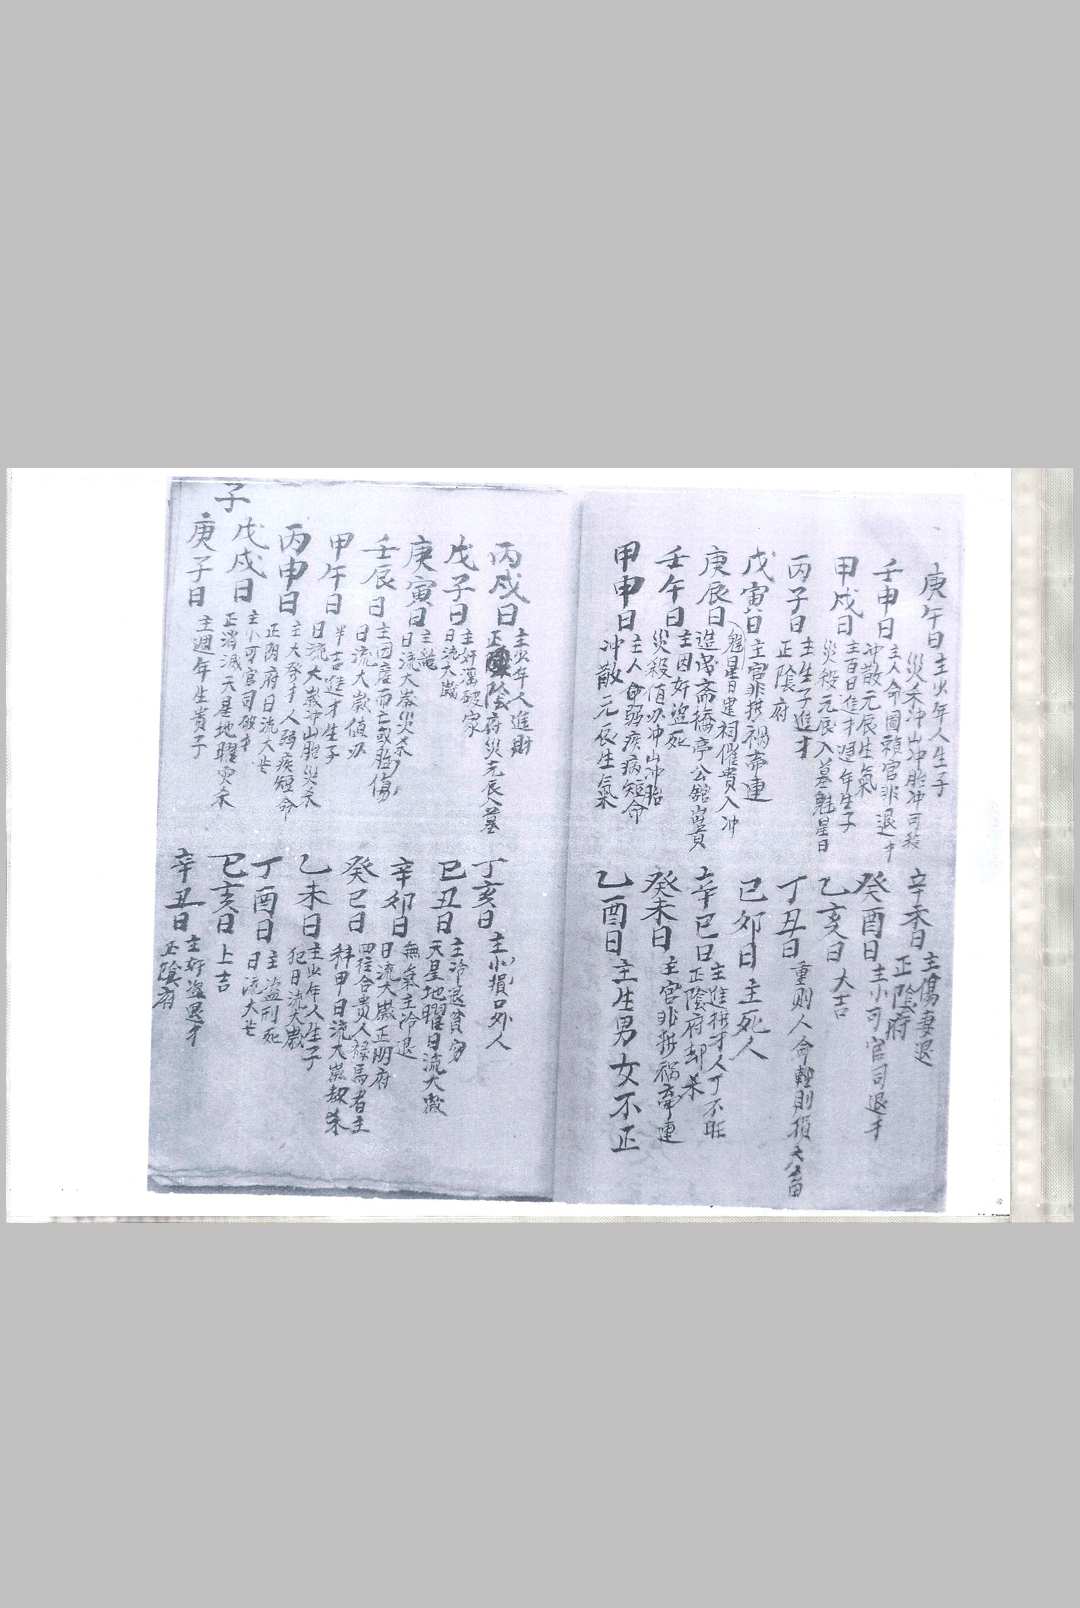 庚午日 主少年人生子
災杀冲山冲胎冲司殺
辛未日 主傷妻退
正陰府
壬申日 主人命圖賴官非退才
冲散元辰生氣
癸酉日 主小可官司退才
甲戌日 主百日進才週年生子
災殺元辰入墓魁星日
乙亥日 大吉
丙子日 主生子進才
正陰府
丁丑日 重則人命輕則損六畜
戊寅日 主官非撗禍牽連
己卯日 主死人
庚辰日 魁星日建祠催貴入冲
造書斋橋亭公館富貴
辛巳日 主進撗才人丁不旺
正陰府却杀
壬午日 主因奸盜死
災殺值刃冲山冲胎
癸未日 主官非撗禍牽連
甲申日 主人命弱疾病短命
冲散元辰生氣
乙酉日 主生男女不正
丙戌日 主少年人進財
正陰府災元辰入墓
丁亥日 主小損口外人
戊子日 主奸淫破家
日流大歲
己丑日 主冷退貧窮
天星地曜日流大歲
庚寅日 主
日流大歲災杀
辛卯日 無氣主冷退
日流大歲正陰府
壬辰日 主因産而亡或胎傷
日流大歲值刃
癸巳日 四柱合贵人祿馬者主
甲日流大歲却杀
甲午日 半吉進才生子
日流大歲冲山胎災杀
乙未日 主少年人生子
犯日流大歲
丙申日 主大發才人弱疾短命
正阴府日流大亡
丁酉日 主盜刑死
日流大亡
戊戌日 主小可官司破才
正消滅天星地曜灾杀
己亥日 上吉
庚子日 主週年生貴子
子
辛丑日 主奸盗退才
正陰府